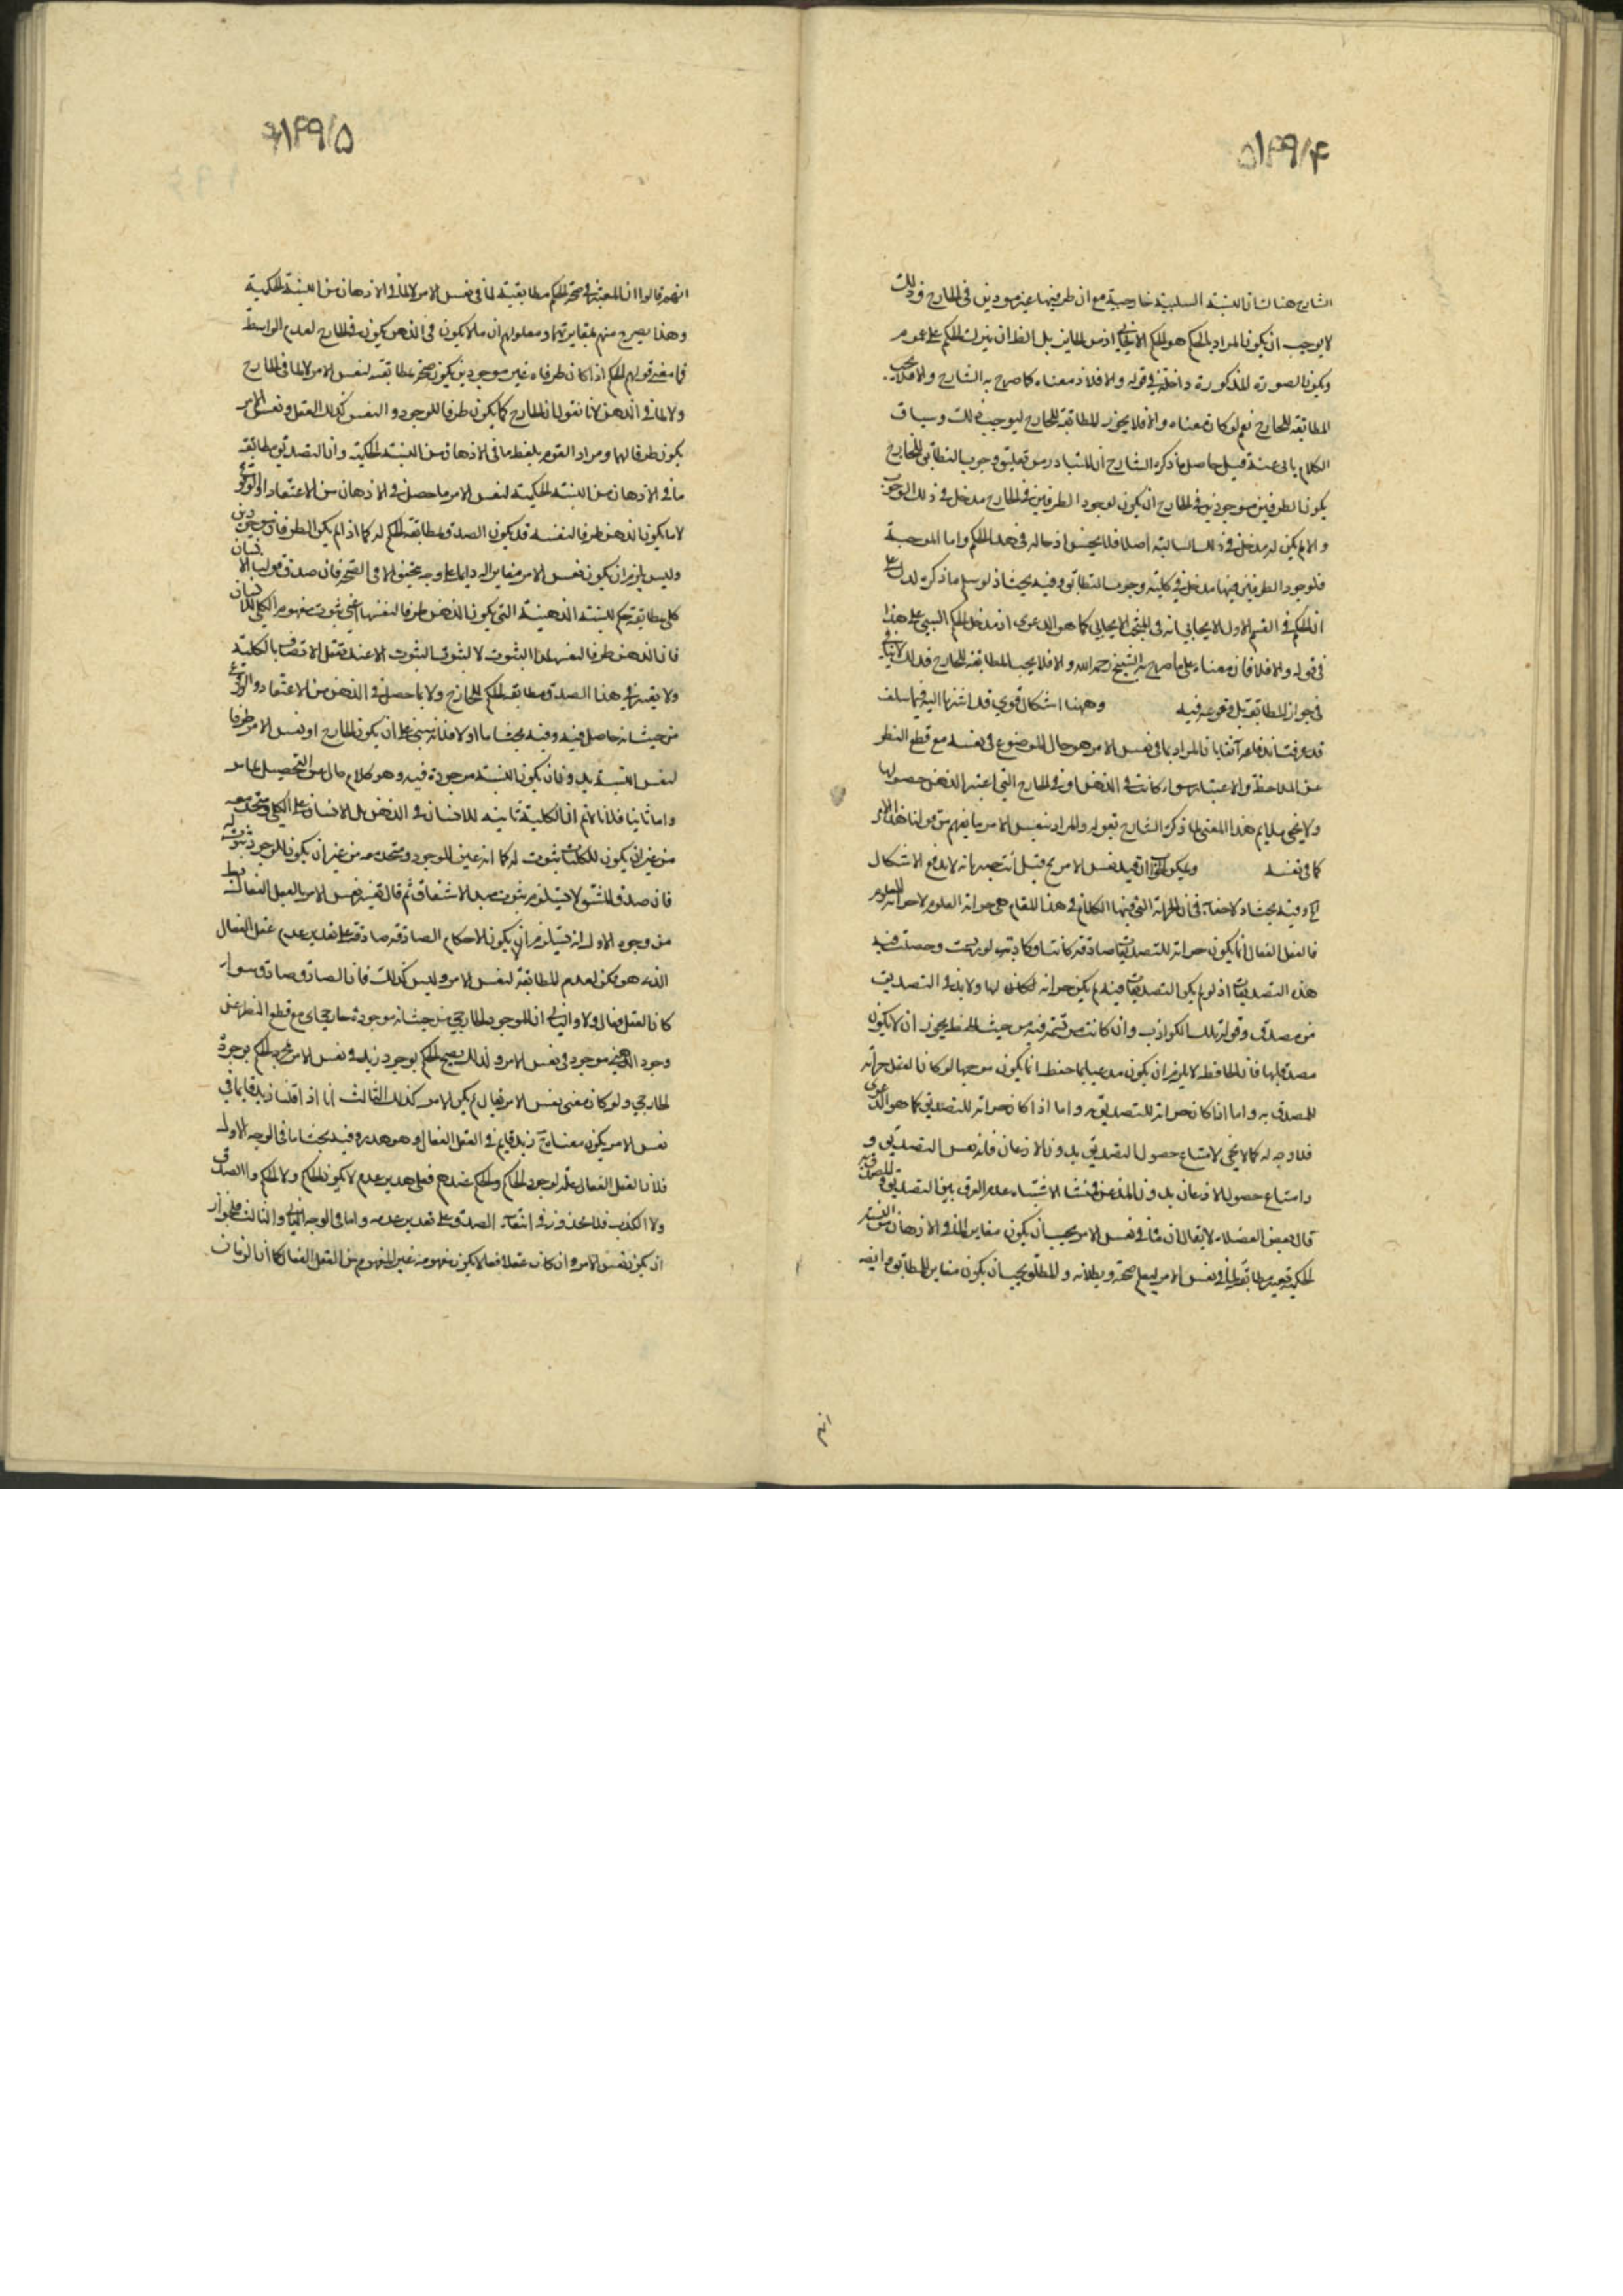 ۵۱۴۹/۴
الشارح هنا بان النسبة السلبية خارجية مع ان طرفيها غير موجودين في الخارج وذلك
لا يوجب ان يكون المراد بالحكم هو الحكم الايجابي بل ان يترك الحكم على عمومه
ويكون الصورة المذكورة داخلة في قوله والا فلا اذ معناه كما صرح به الشارح والا فلا يجب
المطابقة للخارج نعم لو كان معناه والا فلا يجوز المطابقة للخارج ليوجب ذلك وسياق
الكلام يابى عنه قيل حاصل ما ذكره الشارح ان المتبادر من تعليق وجوب التطابق للخارج
يكون الطرفين موجودين في الخارج ان يكون لوجود الطرفين في الخارج مدخل في ذلك الوجوب
والا لم يكن له مدخل في ذلك السالبة اصلا فلا يحسن ادخاله في هذا الحكم واما الموجبة
فلوجود الطرفين فيها مدخل في كلية وجوب التطابق وفيه بحث اذ لو سلم ما ذكره لدل على
ان الحكم في القسم الاول الايجابي انه في الايجابي كما هو المدعى اذ مدخل الحكم السلبي على هذا
في قوله والا فلا فان معناه على ما صرح به الشيخ رحمه الله والا فلا يجب المطابقة للخارج فذلك لا ينافي
في جواز المطابقة بل وقوعه فيه وههنا اشكال قوي قد اشرنا اليه فيما سلف
قد عرفت اندفاعه آنفا بان المراد بما في نفس الامر هو حال الموضوع في نفسه مع قطع النظر
عن الملاحظة والاعتبار سواء كانت في الذهن او في الخارج التي اعتبر الذهن حصولها
ولا يخفى ملايم هذا المعنى لما ذكره الشارح بقوله والمراد بنفس الامر ما يفهم من قولنا هذا الامر
كما في نفسه ويمكن ان قيد نفس الامر قيل انت خبير بانه لا يدفع الاشكال
وفيه بحث اذ لا خفاء في ان الخزانة التي فيها الكلام في هذا المقام هي خزانة العلوم لا خزانة المعلوم
فالعقل الفعال انما يكون خزانة للتصديقات صادقة كانت او كاذبة لو وجدت وحصلت فيه
هذه التصديقات اذ لو لم يكن التصديقات فيه لم يكن خزانة لها ولا بد في التصديق
من مصدق وقوله تلك الكواذب وان كانت مرتسمة فيه من حيث الحفظ يجوز ان لا يكون
مصدقا بها فان الحافظ لا يلزم ان يكون مذعنا بما حفظ انما يكون موجها لو كان العقل خزانة
للمصدق به واما اذا كان خزانة للتصديق واما اذا كان خزانة للتصديق كما هو المدعى
فلا وجه له كما لا يخفى لامتناع حصول التصديق بدون الاذعان فانه نفس التصديق و
وامتناع حصول الاذعان بدون المذعن فمنشا الاشتباه عدم الفرق بين التصديق والمصدق به
قال بعض الفضلاء لا يقال ان ما في نفس الامر يجب ان يكون مغايرا لما في الاذهان من النسبة
الحكمية يعتبر مطابقته لما في نفس الامر ليعلم صحته وبطلانه والمطابق يجب ان يكون مغايرا للمطابق وايضا
انهم
۶۱۴۹/۵
انهم قالوا ان المعتبر في صحة الحكم مطابقته لما في نفس الامر لا لما في الاذهان من النسبة الحكمية
وهذا تصريح منهم بمغايرتهما ومعلوم ان ما لا يكون في الذهن يكون في الخارج لعدم الواسطة
فما معنى قولهم الحكم اذا كان طرفاه غير موجودين يكون صحته بمطابقته لنفس الامر لا لما في الخارج
ولا لما في الذهن لانا نقول ان الخارج كما يكون ظرفا للوجود والنفس كذلك العقل ونفس الامر
يكون ظرفا لهما ومراد القوم بلفظ ما في الاذهان من النسبة الحكمية وان التصديق مطابقة
ما في الاذهان من النسبة الحكمية لنفس الامر ما حصل في الاذهان من الاعتقاد او الوقوع
لا ما يكون الذهن ظرفا لنفسه قد يكون الصدق لمطابقة الحكم له كما اذا لم يكن الطرفان موجودين
وليس يلزم ان يكون نفس الامر مغايرا له دائما على وجه يتحقق الا في الصحة فان صدق قولنا الانسان
كلي مطابقة حكم للنسبة الذهنية التي يكون الذهن ظرفا لنفسها اعني ثبوت مفهوم الكلي للانسان
فان الذهن ظرفا لنفس هذا الثبوت لا لثبوت الثبوت الا عند تعقل الاتصاف بالكلية
ولا يعتبر في هذا الصدق مطابقة الحكم للخارج ولا بما حصل في الذهن من الاعتقاد والوقوع
من حيث انه حاصل فيه وفيه بحث اما اولا فلانه مبني على ان يكون الخارج او نفس الامر ظرفا
لنفس النسبة بدون ان يكون النسبة موجودة فيه وهو كلام خال عن التحصيل
واما ثانيا فلانا لا نم ان الكلية ثابتة للانسان في الذهن بل الانسان عين الكلي ومتحد معه
من غير ان يكون للكليات ثبوت له كما انه عين الموجود ومتحد معه من غير ان يكون للوجود ثبوت له
فان صدق المشتق لا يستلزم ثبوت مبدء الاشتقاق ثم قال تفسير نفس الامر بالعقل الفعال
من وجوه الاول انه يستلزم ان يكون الاحكام الصادقة صادقة على تقدير عدم عقل الفعال
الذي هو ممكن لعدم المطابقة لنفس الامر وليس كذلك فان الصادق صادق سواء
كان العقل فعال اولا والثاني ان الموجود الخارجي من حيث انه موجود خارجي مع قطع النظر عن
وجود الذهني موجود في نفس الامر ولذلك يصح الحكم بوجود زيد في نفس الامر بمجرد الحكم بوجوده
الخارجي ولو كان معنى نفس الامر فعال لم يكن الامر كذلك الثالث انا اذا قلنا زيد قائما في
نفس الامر يكون معناه زيد قائم في العقل الفعال وهو هذر وفيه بحث اما في الوجه الاول
فلان العقل الفعال علة لوجود الحاكم والحكم عندهم فعلى تقدير عدمه لا يكون الحاكم ولا الحكم ولا الصدق
ولا الكذب فلا محذور في انتفاء الصدق على تقدير عدمه واما في الوجه الثاني والثالث فلجواز
ان يكون نفس الامر وان كان عقلا فعالا يكون مفهومه غير المفهوم من العقل الفعال كما ان الزمان